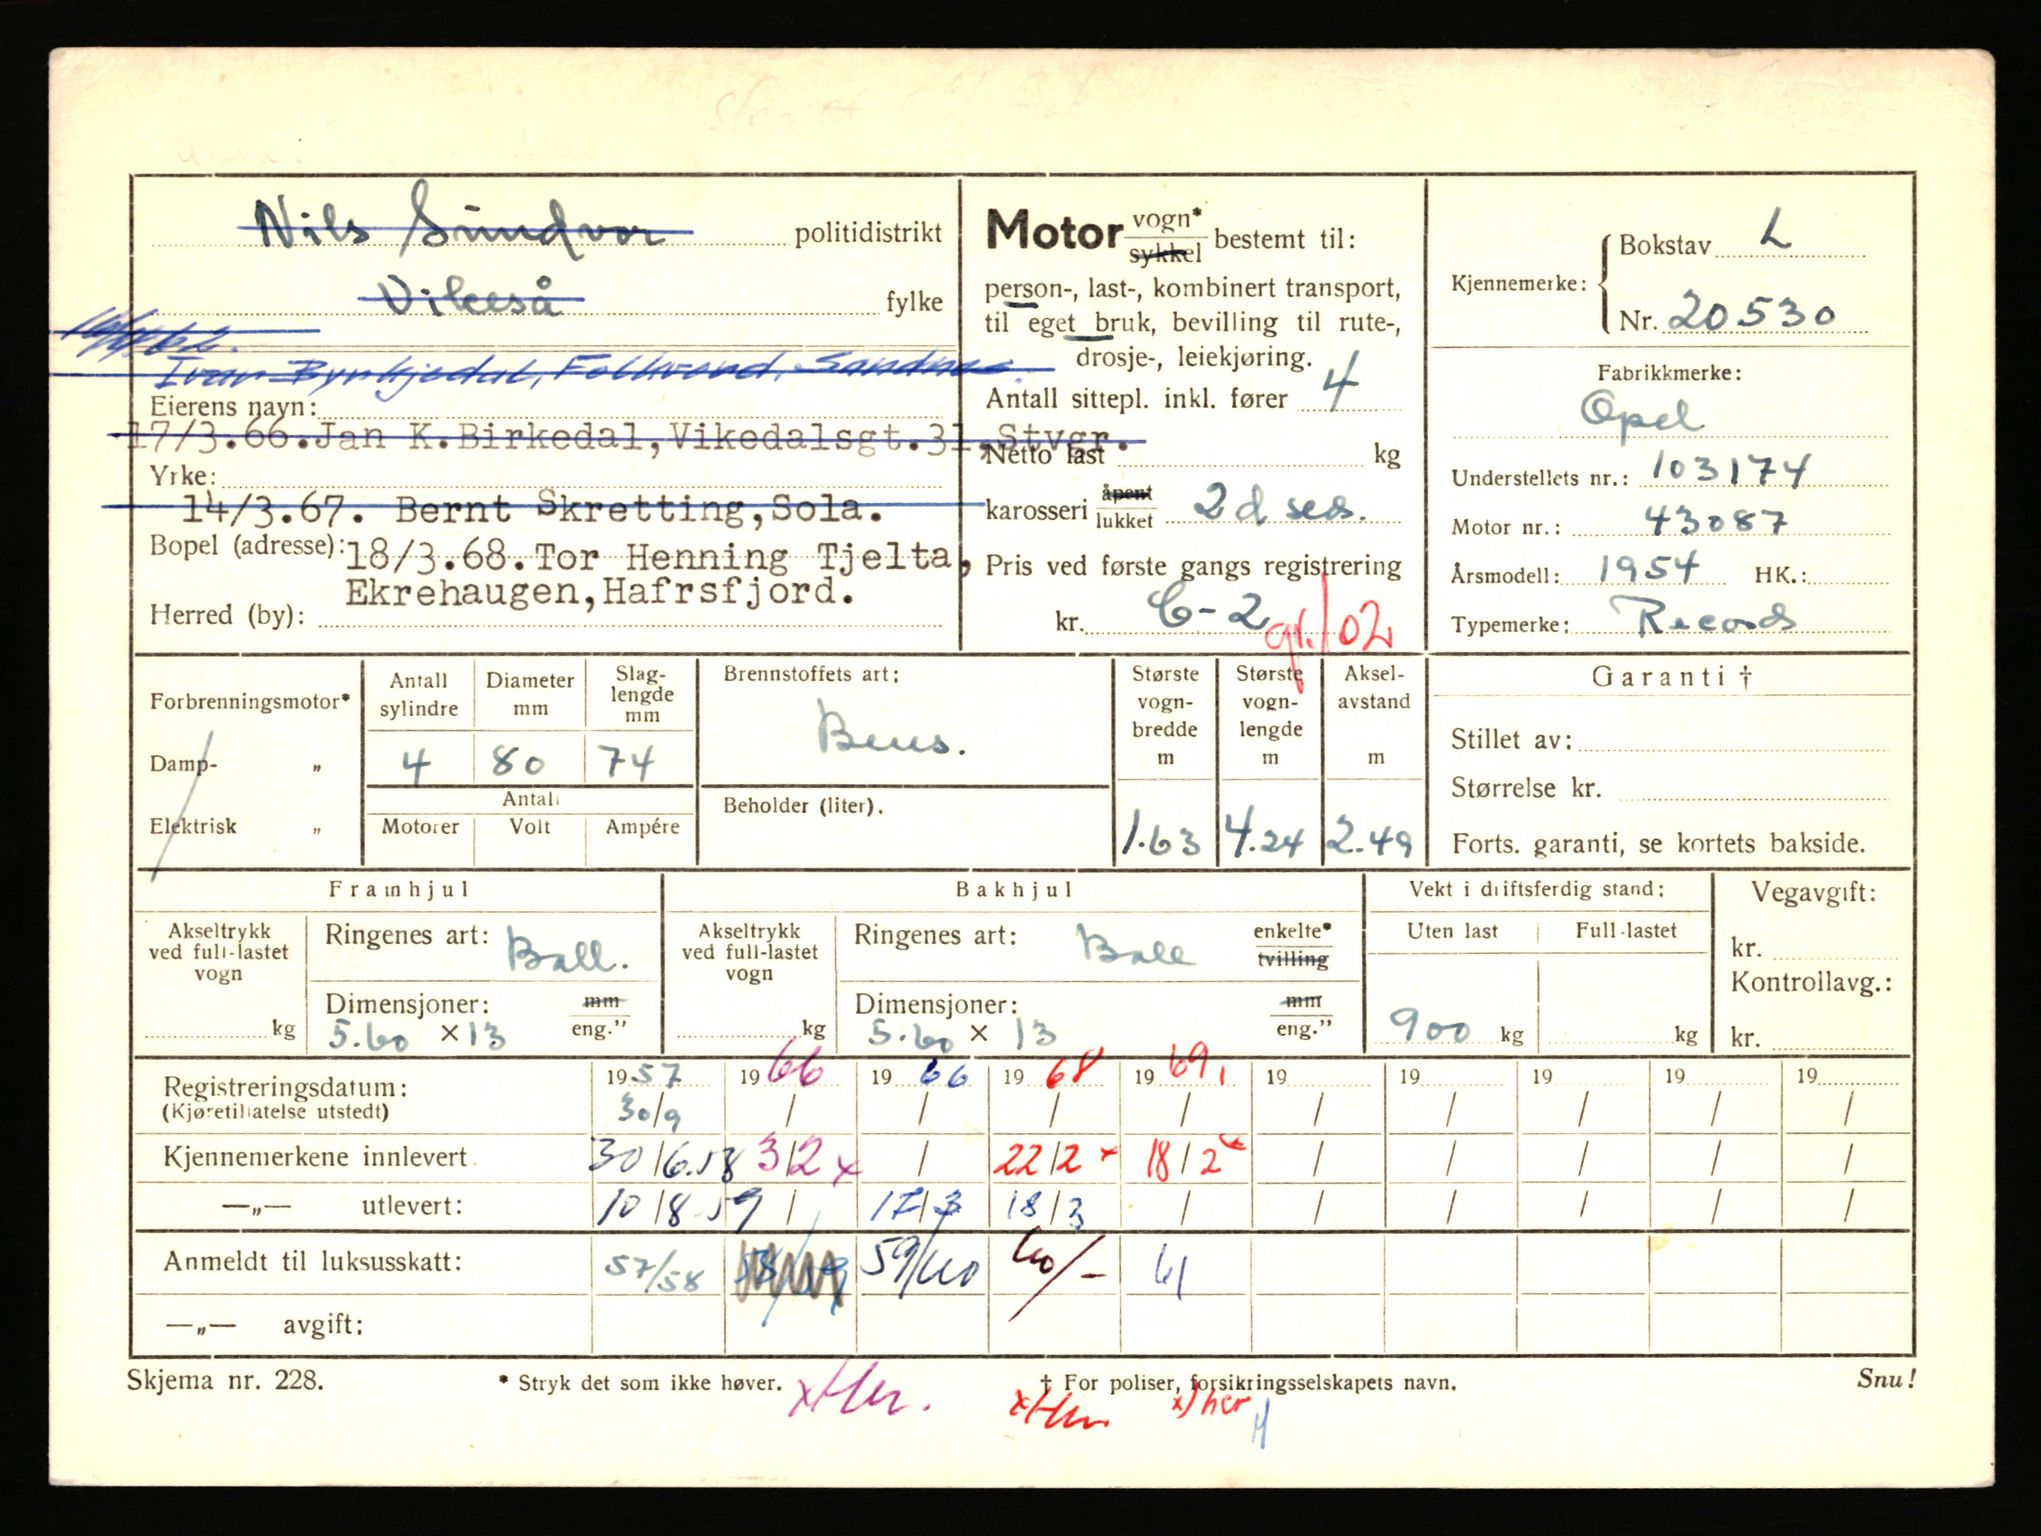 Nils Sundvor politidistrikt
Vikeså fylke
Ivar Byrkjedal, Folkvord, Sandnes.
Eierens navn:
17/3.66.Jan K.Birkedal,Vikedalsgt.31,Stvgr.
Yrke:
14/3.67. Bernt Skretting,Sola.
Bopel (adresse): 18/3.68.Tor Henning Tjelta,
Ekrehaugen,Hafrsfjord.
Herred (by):
Motor vogn* sykkel bestemt til:
person-, last-, kombinert transport,
til eget bruk, bevilling til rute-,
drosje-, leiekjøring.
Antall sittepl. inkl. fører 4
Netto last kg
karosseri åpent lukket 2d sed.
Pris ved første gangs registrering
kr. C-2 gr. 02
Kjennemerke: Bokstav L
Nr. 20530
Fabrikkmerke:
Opel
Understellets nr.: 103174
Motor nr.: 43087
Årsmodell: 1954 HK.:
Typemerke: Record
Forbrenningsmotor*
Damp- „
Elektrisk „
Antall sylindre Diameter mm Slag-lengde mm
4 80 74
Antall
Motorer Volt Ampére
Brennstoffets art:
Bens.
Beholder (liter).
Største vogn-bredde m Største vogn-lengde m Aksel-avstand m
1.63 4.24 2.49
Garanti †
Stillet av:
Størrelse kr.
Forts. garanti, se kortets bakside.
Framhjul
Akseltrykk ved full-lastet vogn
kg
Ringenes art: Ball.
Dimensjoner: mm eng."
5.60 x 13
Bakhjul
Akseltrykk ved full-lastet vogn
kg
Ringenes art: Ball enkelte* tvilling
Dimensjoner: mm eng."
5.60 x 13
Vekt i driftsferdig stand:
Uten last Full-lastet
900 kg kg
Vegavgift:
kr.
Kontrollavg.:
kr.
Registreringsdatum: 1957 1966 1966 1968 1969 19 19 19 19 19
(Kjøretillatelse utstedt) 30/9 / / / / / / / / /
Kjennemerkene innlevert 30/6.58 3/2 x / 22/2 x 18/2 x / / / / /
—„— utlevert: 10/8.59 / 17/3 18/3 / / / / / /
Anmeldt til luksusskatt: 57/58 58/59 59/60 60/- 61
—„— avgift:
Skjema nr. 228. * Stryk det som ikke høver. † For poliser, forsikringsselskapets navn. Snu!
x Her. x Her x) her